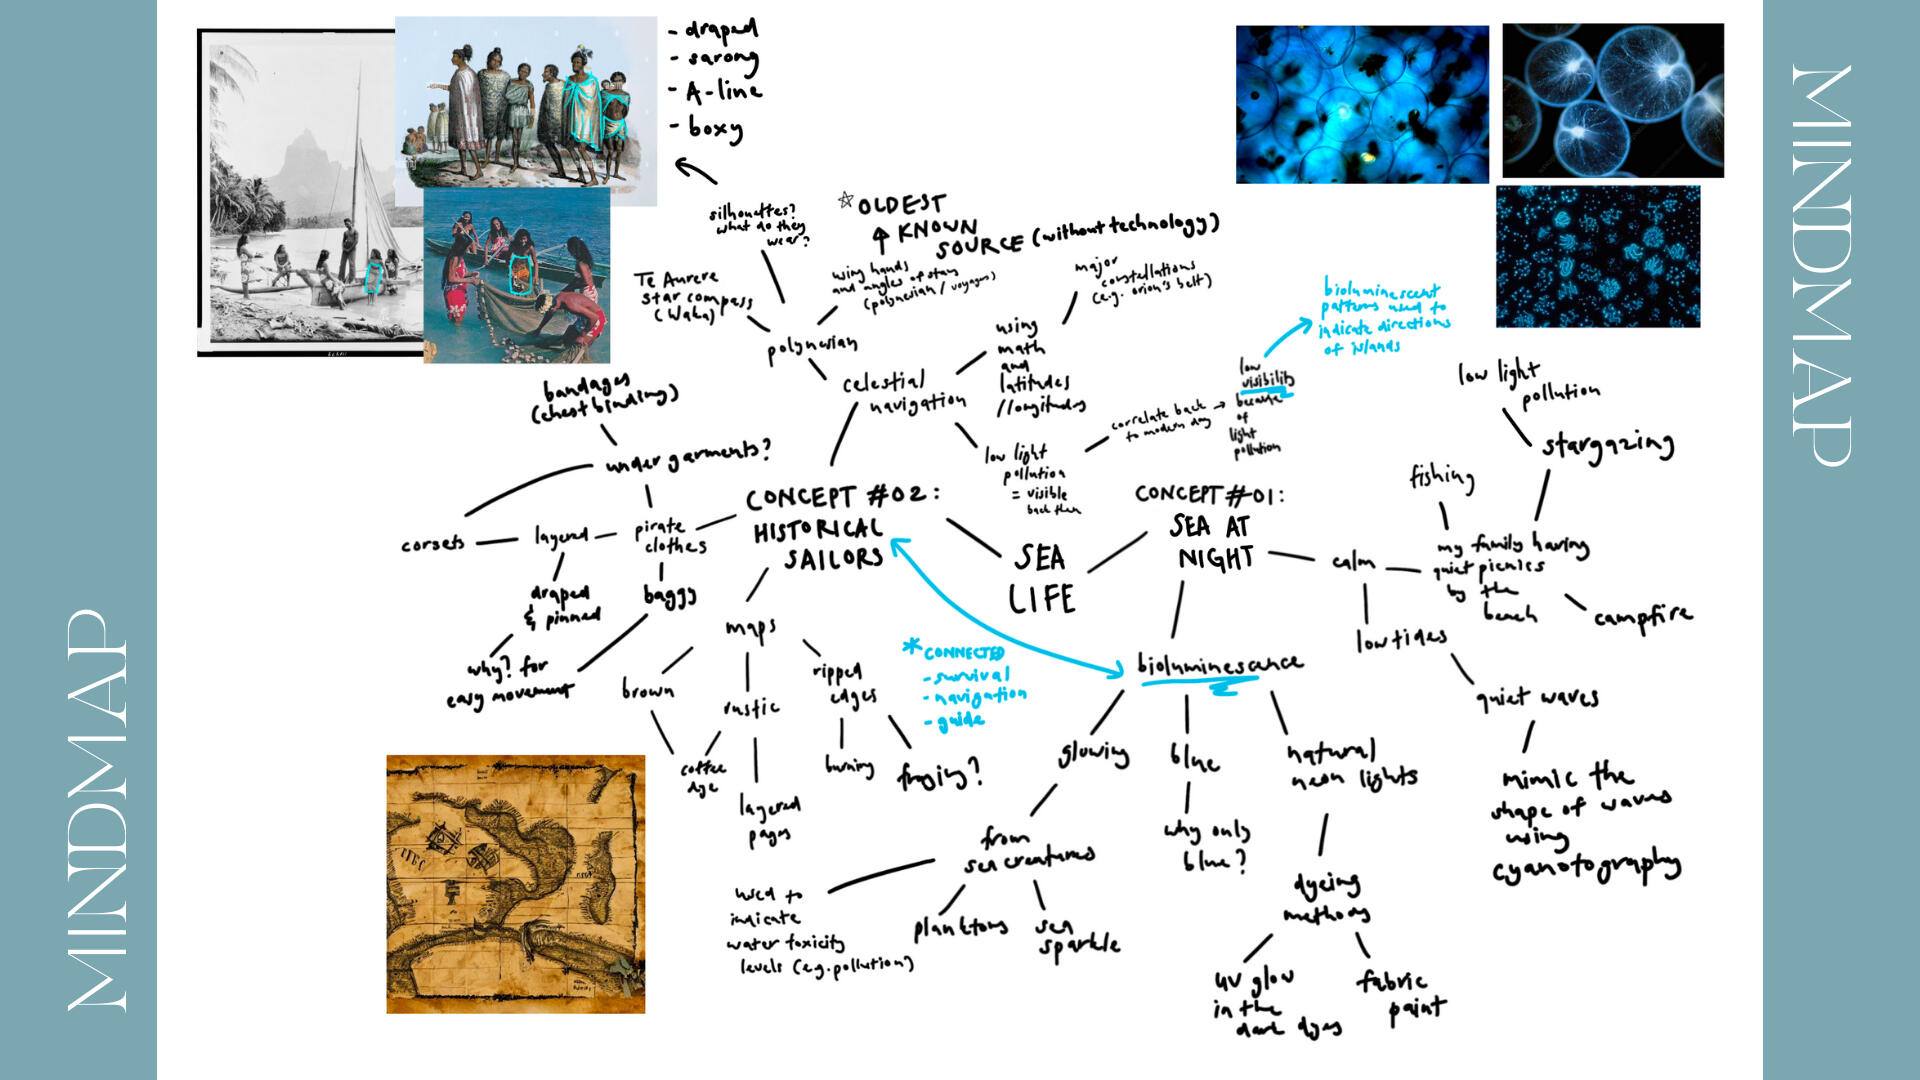 MINDMAP
MINDMAP
- draped
- sarong
- A-line
- boxy
silhouttes?
what do they
wear?
☆ OLDEST
KNOWN
SOURCE (without technology)
Te Aurere
star compass
(Waka)
using hands
and angles of stars
(polynesian / voyagers)
major
constellations
(e.g. orion's belt)
polynesian
using
math
and
latitudes
//longitudes
celestial
navigation
low light
pollution
= visible
back then
correlate back
to modern day
low
visibility
because
of
light
pollution
bioluminescent
patterns used to
indicate directions
of islands
bandages
(chest binding)
under garments?
corsets
layered
pirate
clothes
draped
& pinned
baggy
why? for
easy movement
CONCEPT #02:
HISTORICAL
SAILORS
SEA
LIFE
CONCEPT #01:
SEA AT
NIGHT
calm
my family having
quiet picnics
by the
beach
fishing
stargazing
low light
pollution
campfire
low tides
quiet waves
mimic the
shape of waves
using
cyanotography
maps
brown
rustic
ripped
edges
coffee
dye
layered
pages
burning
fraying?
* CONNECTED
- survival
- navigation
- guide
bioluminescence
glowing
blue
natural
neon lights
from
sea creatures
why only
blue?
used to
indicate
water toxicity
levels (e.g. pollution)
planktons
sea
sparkle
dyeing
methods
uv glow
in the
dark dyes
fabric
paint